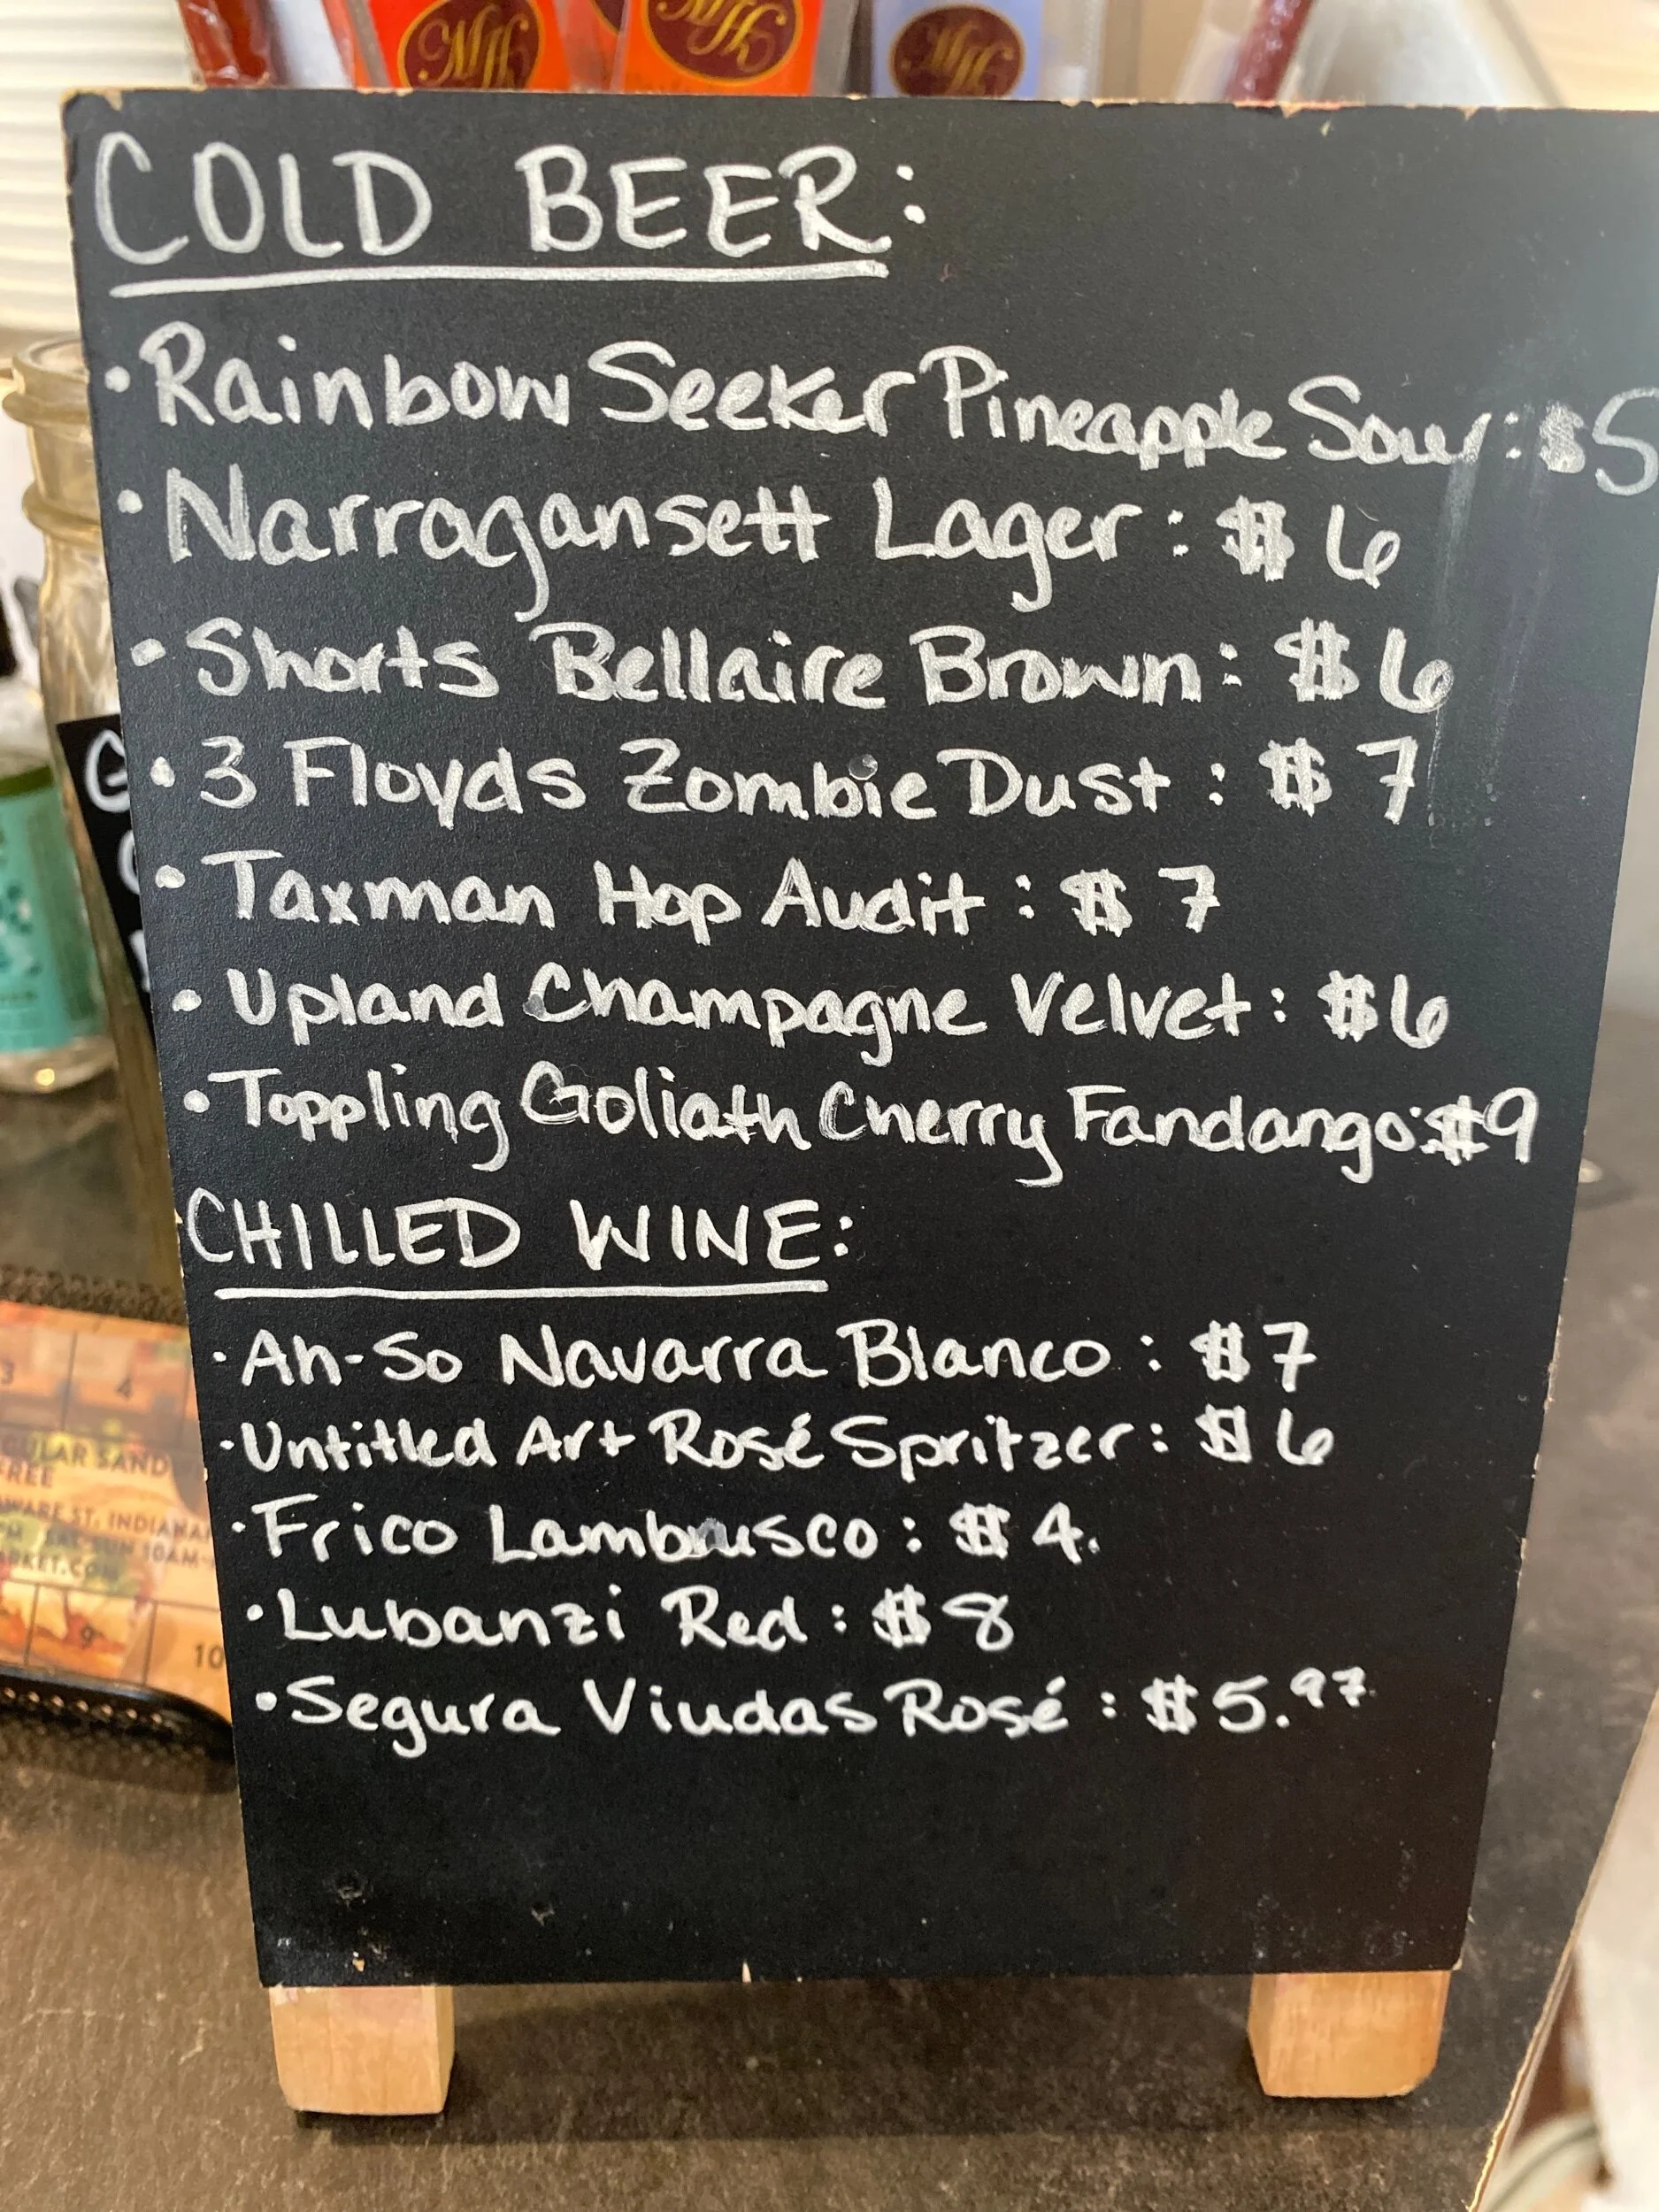 COLD BEER:
• Rainbow Seeker Pineapple Sour: $5
• Narragansett Lager: $6
• Shorts Bellaire Brown: $6
• 3 Floyds Zombie Dust: $7
• Taxman Hop Audit: $7
• Upland Champagne Velvet: $6
• Toppling Goliath Cherry Fandango: $9
CHILLED WINE:
• Ah-So Navarra Blanco: $7
• Untitled Art Rosé Spritzer: $6
• Frico Lambrusco: $4.
• Lubanzi Red: $8
• Segura Viudas Rosé: $5.97
3 4
GULAR SAND
FREE
ST. INDIANA
SAT-SUN 10AM-
9 10